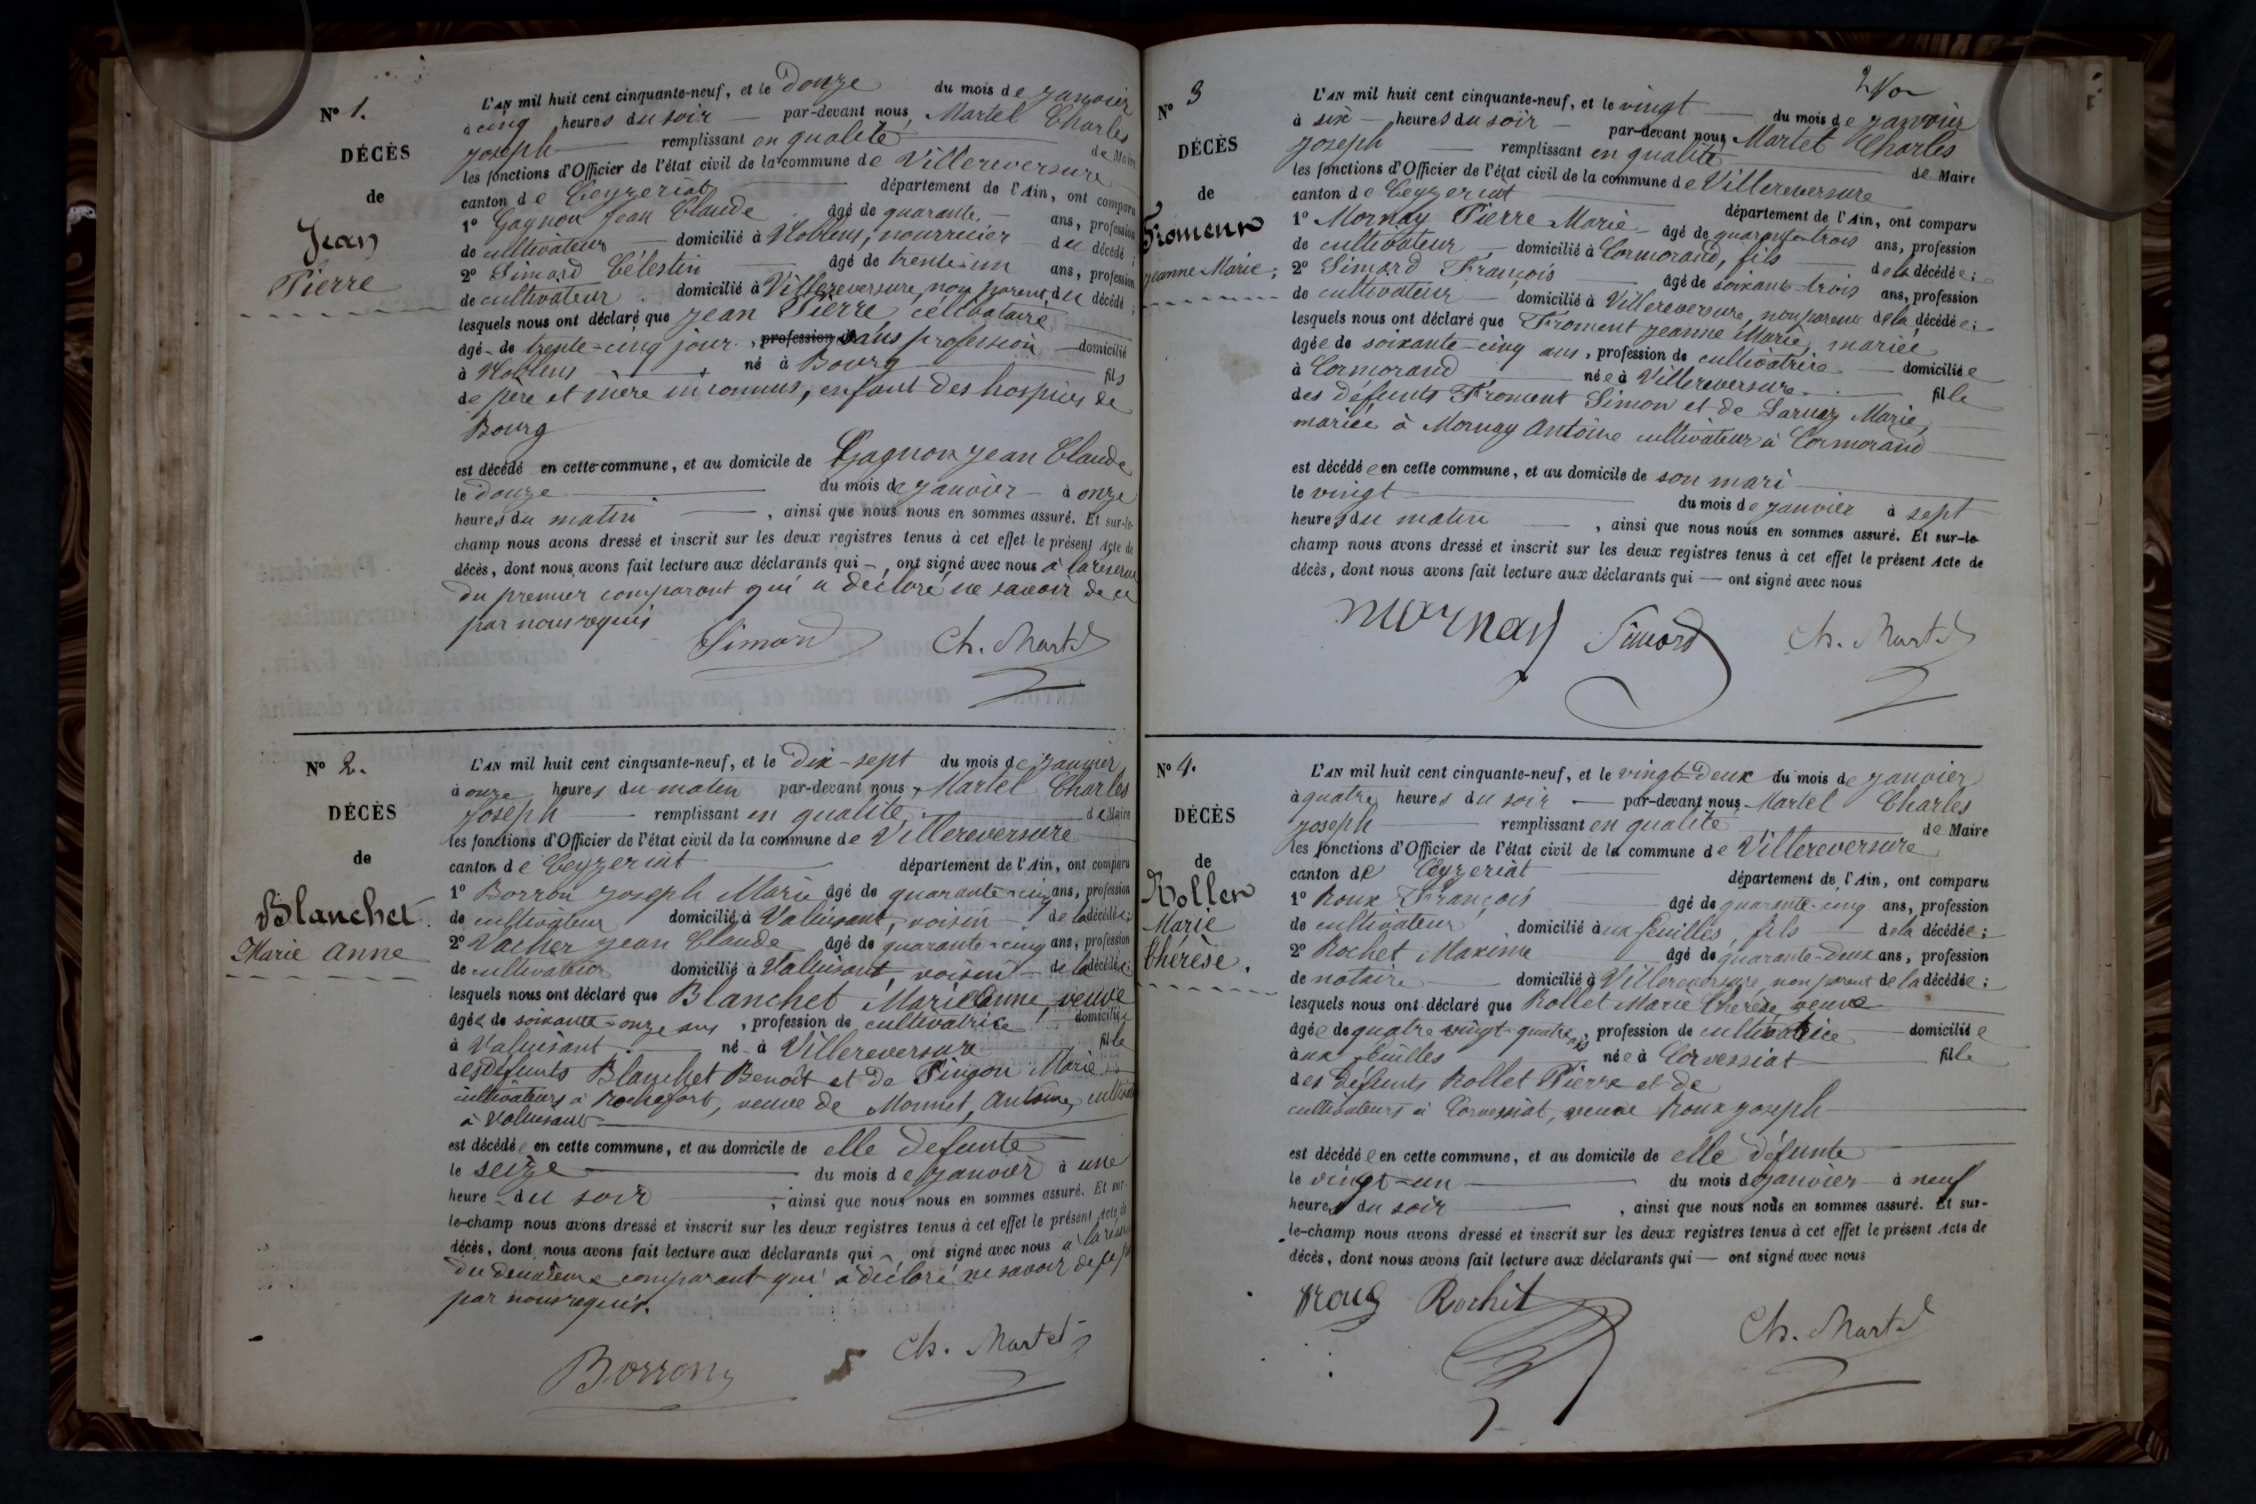 N° 1.
DÉCÈS
de
Jean
Pierre
L'AN mil huit cent cinquante-neuf, et le Douze du mois de janvier
à cinq heures du soir par-devant nous, Martel Charles
Joseph remplissant en qualité de Maire
les fonctions d'Officier de l'état civil de la commune de Villereversure
canton de Ceyzeriat département de l'Ain, ont comparu
1° Gagnon Jean Claude âgé de quarante ans, profession
de cultivateur domicilié à Noblens, nourricier du décédé;
2° Simard Célestin âgé de trente-un ans, profession
de cultivateur domicilié à Villereversure, non parent du décédé;
lesquels nous ont déclaré que Jean Pierre célibataire
âgé de trente-cinq jours, profession sans profession domicilié
à Noblens né à Bourg fils
de père et mère inconnus, enfant des hospices de
Bourg
est décédé en cette commune, et au domicile de Gagnon Jean Claude
le douze du mois de janvier à onze
heures du matin, ainsi que nous nous en sommes assuré. Et sur-le-
champ nous avons dressé et inscrit sur les deux registres tenus à cet effet le présent Acte de
décès, dont nous avons fait lecture aux déclarants qui ont signé avec nous à la réserve
du premier comparant qui a déclaré ne savoir de ce
par nous requis
Simard Ch. Martel
N° 2.
DÉCÈS
de
Blanchet
Marie Anne
L'AN mil huit cent cinquante-neuf, et le Dix-sept du mois de janvier
à onze heures du matin par-devant nous, Martel Charles
Joseph remplissant en qualité de Maire
les fonctions d'Officier de l'état civil de la commune de Villereversure
canton de Ceyzeriat département de l'Ain, ont comparu
1° Borron Joseph Marie âgé de quarante-cinq ans, profession
de cultivateur domicilié à Valuisant, voisin de la décédée;
2° Vacher Jean Claude âgé de quarante-cinq ans, profession
de cultivateur domicilié à Valuisant voisin de la décédée;
lesquels nous ont déclaré que Blanchet Marie Anne, veuve
âgée de soixante-onze ans, profession de cultivatrice domiciliée
à Valuisant né à Villereversure fille
des défunts Blanchet Benoît et de Pingon Marie
cultivateurs à Rochefort, veuve de Monnet, Antoine, cultivateur
à Valuisant
est décédée en cette commune, et au domicile de elle défunte
le seize du mois de janvier à une
heure du soir, ainsi que nous nous en sommes assuré. Et sur-
le-champ nous avons dressé et inscrit sur les deux registres tenus à cet effet le présent Acte de
décès, dont nous avons fait lecture aux déclarants qui ont signé avec nous à la réserve
du deuxième comparant qui a déclaré ne savoir de ce
par nous requis.
Borron Ch. Martel
2
N° 3
DÉCÈS
de
Froment
Jeanne Marie;
L'AN mil huit cent cinquante-neuf, et le vingt du mois de janvier
à six heures du soir par-devant nous Martel Charles
Joseph remplissant en qualité de Maire
les fonctions d'Officier de l'état civil de la commune de Villereversure
canton de Ceyzeriat département de l'Ain, ont comparu
1° Mornay Pierre Marie âgé de quarante-trois ans, profession
de cultivateur domicilié à Cormorand, fils de la décédée;
2° Simard François âgé de soixante-trois ans, profession
de cultivateur domicilié à Villereversure, non parent de la décédée;
lesquels nous ont déclaré que Froment Jeanne Marie, mariée
âgée de soixante-cinq ans, profession de cultivatrice domiciliée
à Cormorand née à Villereversure fille
des défunts Froment Simon et de Marie,
mariée à Mornay Antoine cultivateur à Cormorand
est décédée en cette commune, et au domicile de son mari
le vingt du mois de janvier à sept
heures du matin, ainsi que nous nous en sommes assuré. Et sur-le-
champ nous avons dressé et inscrit sur les deux registres tenus à cet effet le présent Acte de
décès, dont nous avons fait lecture aux déclarants qui — ont signé avec nous
mornay Simard Ch. Martel
N° 4.
DÉCÈS
de
Rollet
Marie
Thérèse.
L'AN mil huit cent cinquante-neuf, et le vingt-deux du mois de janvier
à quatre heures du soir par-devant nous Martel Charles
Joseph remplissant en qualité de Maire
les fonctions d'Officier de l'état civil de la commune de Villereversure
canton de Ceyzeriat département de l'Ain, ont comparu
1° Roux François âgé de quarante-cinq ans, profession
de cultivateur domicilié aux feuilles, fils de la décédée;
2° Rochet Maxime âgé de quarante-deux ans, profession
de notaire domicilié à Villereversure, non parent de la décédée;
lesquels nous ont déclaré que Rollet Marie Thérèse, veuve
âgée de quatre vingt-quatre ans, profession de cultivatrice domiciliée
aux feuilles née à Corvessiat fille
des défunts Rollet Pierre et de
cultivateurs à Corvessiat, veuve Roux Joseph
est décédée en cette commune, et au domicile de elle défunte
le vingt-un du mois de janvier à neuf
heures du soir, ainsi que nous nous en sommes assuré. Et sur-
le-champ nous avons dressé et inscrit sur les deux registres tenus à cet effet le présent Acte de
décès, dont nous avons fait lecture aux déclarants qui — ont signé avec nous
Roux Rochet Ch. Martel